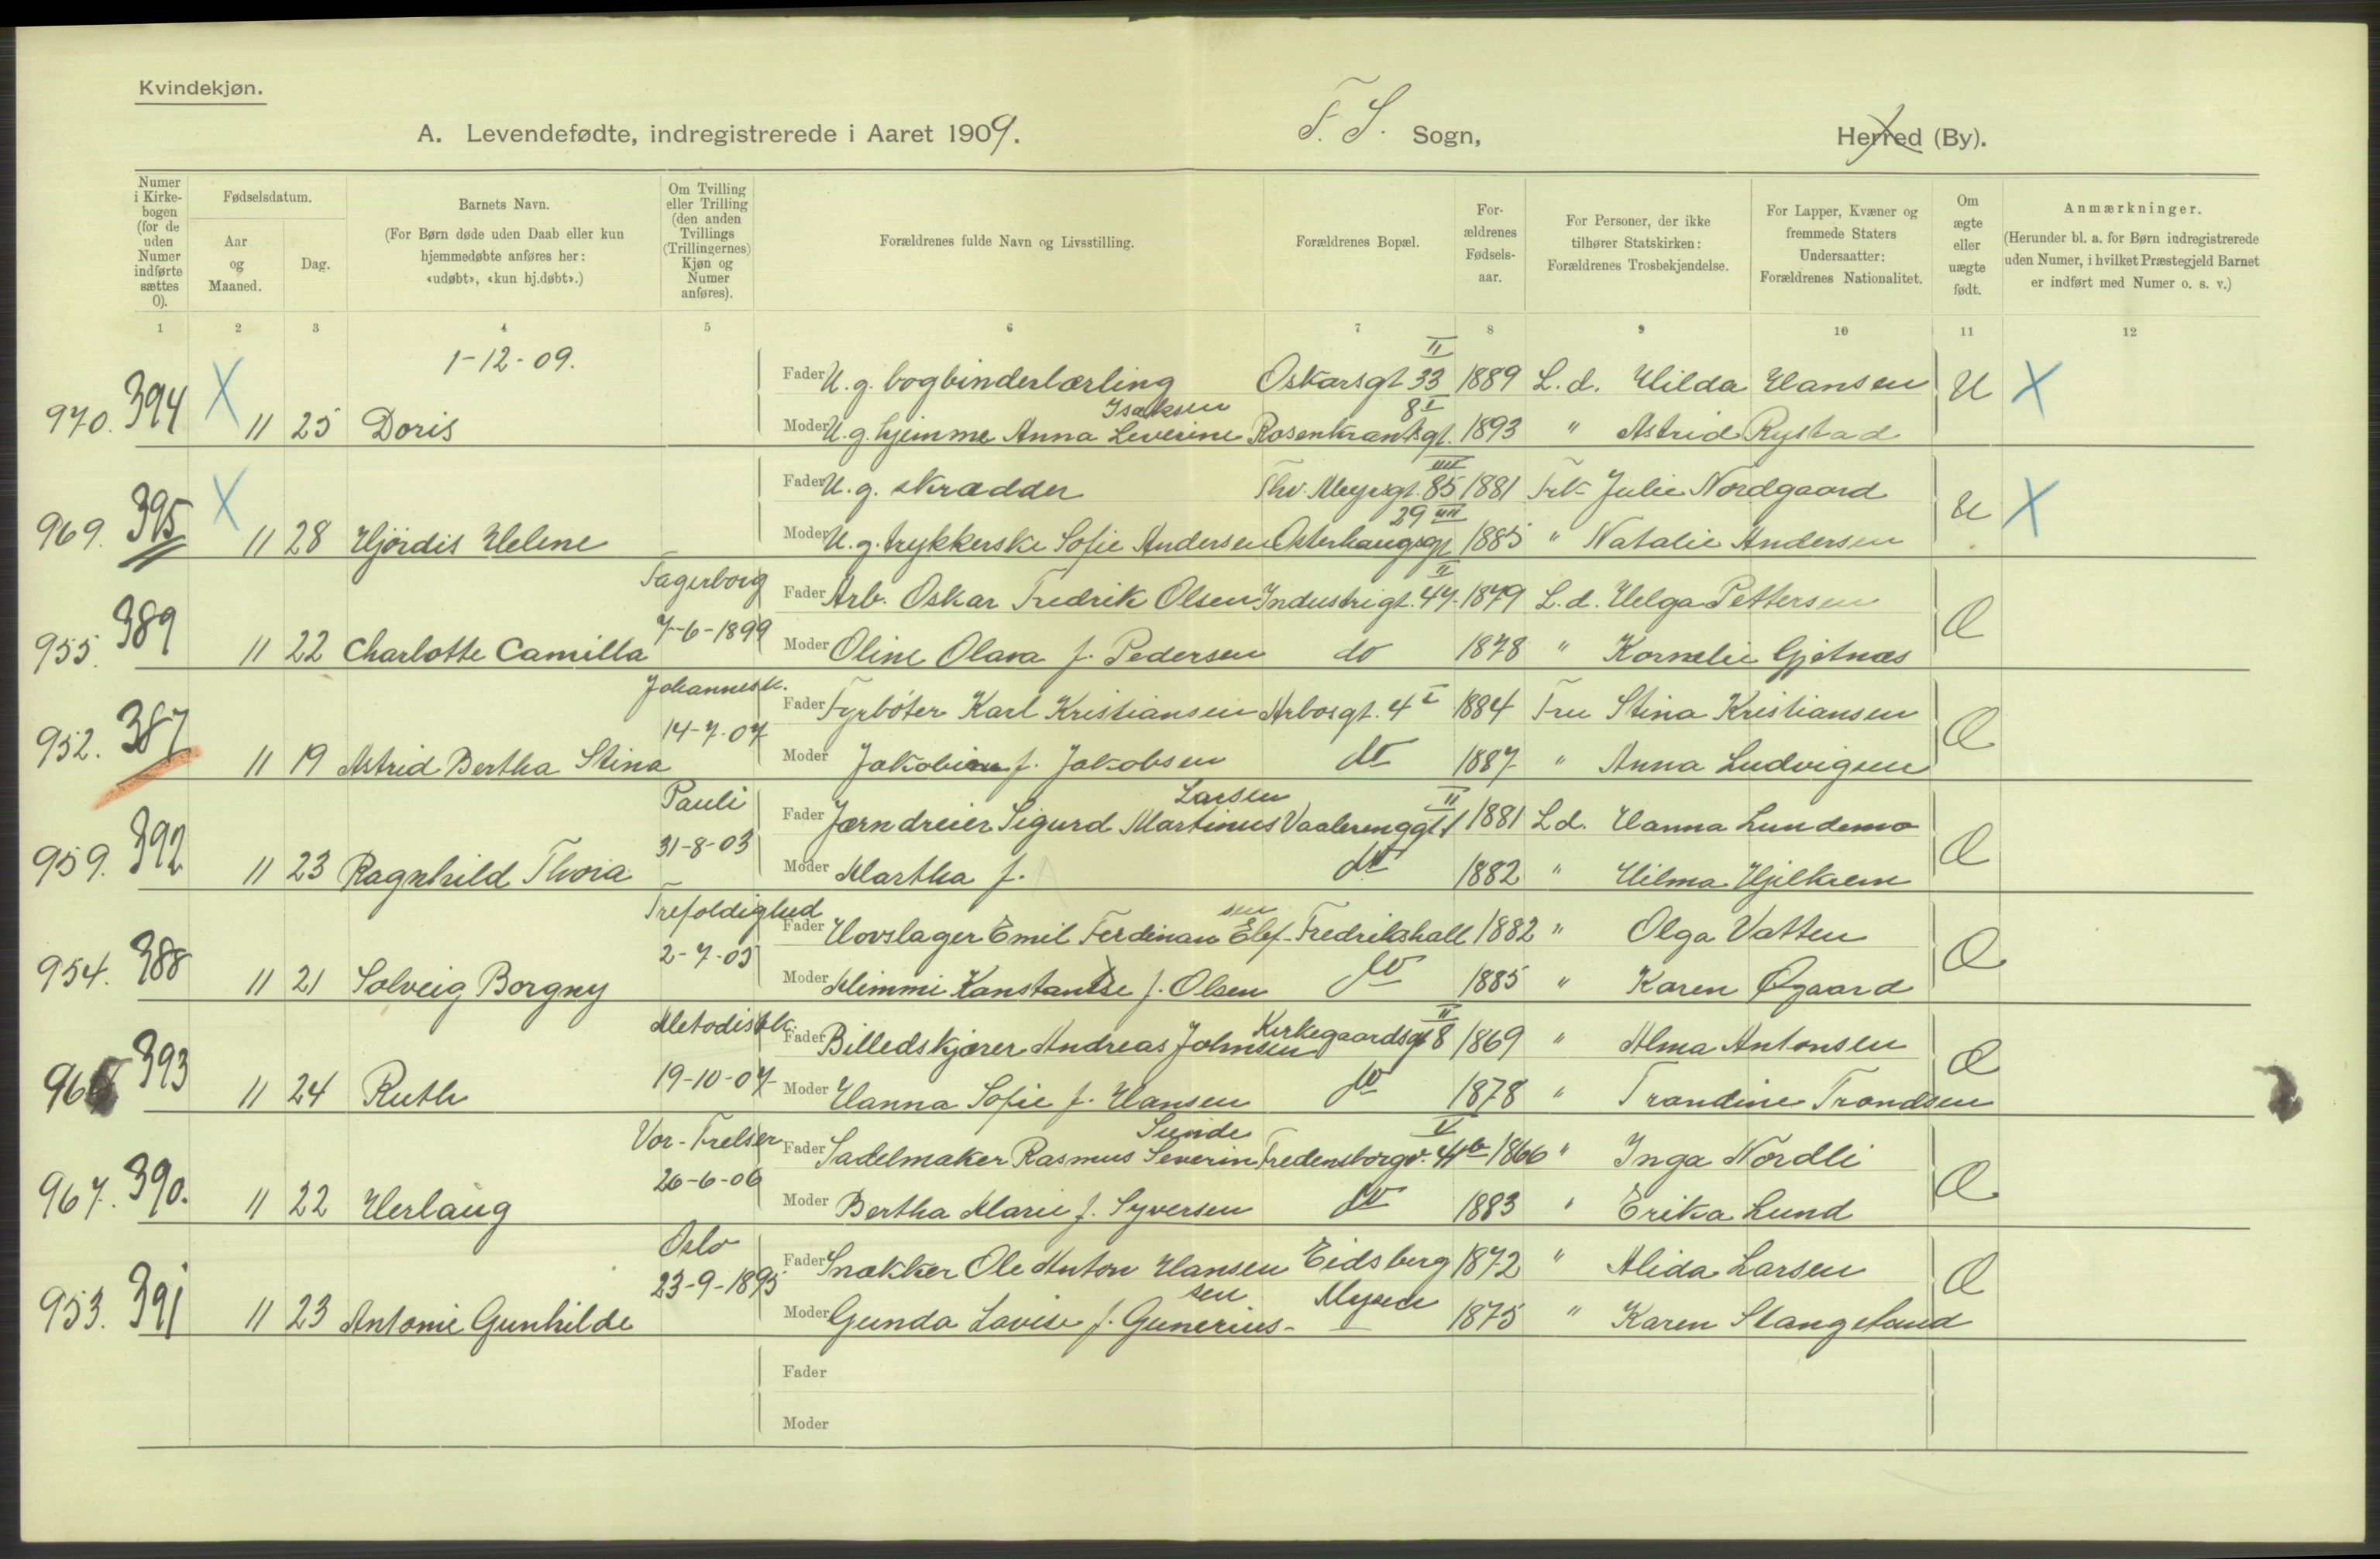 Kvindekjøn.
A. Levendefødte, indregistrerede i Aaret 1909. F. S. Sogn, Herred (By).
Numer i Kirkebogen (for de uden Numer indførte sættes 0).
Fødselsdatum.
Aar og Maaned.
Dag.
Barnets Navn.
(For Børn døde uden Daab eller kun hjemmedøbte anføres her: «udøbt», «kun hj.døbt».)
Om Tvilling eller Trilling (den anden Tvillings (Trillingernes) Kjøn og Numer anføres).
Forældrenes fulde Navn og Livsstilling.
Forældrenes Bopæl.
Forældrenes Fødselsaar.
For Personer, der ikke tilhører Statskirken: Forældrenes Trosbekjendelse.
For Lapper, Kvæner og fremmede Staters Undersaatter: Forældrenes Nationalitet.
Om ægte eller uægte født.
Anmærkninger.
(Herunder bl. a. for Børn indregistrerede uden Numer, i hvilket Præstegjeld Barnet er indført med Numer o. s. v.)
1 2 3 4 5 6 7 8 9 10 11 12
1-12-09.
Fader U. g. bogbinderlærling Oskarsgt 33 II 1889 L. d. Hilda Hansen U X
970. 394 X 11 25 Doris Moder U. g. hjemme Anna Leverine Isaksen Rosenkrantsgt. 8 I 1893 " Astrid Rystad
Fader U. g. skrædder Thv. Meyersgt. 85 IIII 1881 Frk Julie Nordgaard U X
969. 395 X 11 28 Hjørdis Helene Moder U. g. trykkerske Sofie Andersen Østerhaugsgt 29 IIII 1885 " Natalie Andersen
Fagerborg Fader Arb. Oskar Fredrik Olsen Industrigt. 47. II 1879 L. d. Helga Pettersen Æ
955. 389 11 22 Charlotte Camilla 7-6-1899 Moder Oline Olava f. Pedersen do 1878 " Kornelie Gjetnæs
Johannesk. Fader Fyrbøter Karl Kristiansen Arbosgt. 4 I 1884 Fru Stina Kristiansen Æ
952. 387 11 19 Astrid Bertha Stina 14-7-07 Moder Jakobine f. Jakobsen do 1887 " Anna Ludvigsen
Pauli Fader Jærndreier Sigurd Martinus Larsen Vaalerenggt 1 II 1881 L d. Hanna Lundemo Æ
959. 392 11 23 Ragnhild Thora 31-8-03 Moder Martha f. do 1882 " Hilma Hjelkrem
Trefoldighed Fader Hovslager Emil Ferdinan Elef-sen Fredrikshall 1882 " Olga Vatten Æ
954. 388 11 21 Solveig Borgny 2-7-05 Moder Mimmi Konstanse f. Olsen do 1885 " Karen Øgaard
Metodistk. Fader Billedskjærer Andreas Johnsen Kirkegaardsgt 8 II 1869 " Alma Antonsen Æ
393 11 24 Ruth 19-10-07 Moder Hanna Sofie f. Hansen do 1878 " Trandine Trondsen
Vor-Frelser Fader Sadelmaker Rasmus Severin Sunde Fredensborgv. 41b V 1866 " Inga Nordli Æ
967. 390. 11 22 Herlaug 26-6-06 Moder Bertha Marie f. Syversen do 1883 " Erika Lund
Oslo Fader Snekker Ole Anton Hansen Eidsberg 1872 " Alida Larsen Æ
953. 391 11 23 Antonie Gunhilde 23-9-1895 Moder Gunda Lovise f. Gunerius-sen Mysen 1875 " Karen Stangeland
Fader
Moder